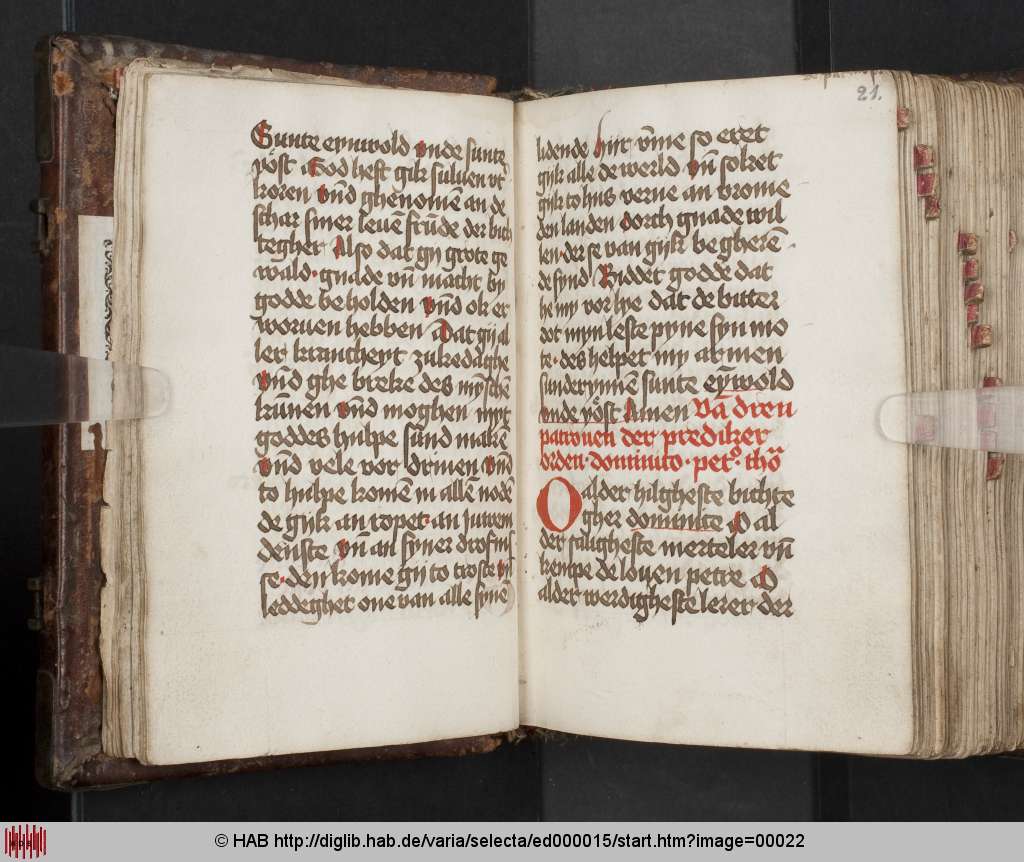 Sunte eynwold vnde sunte
yöst God heft gik suluen vt
koren vnd ghenomē an de
schar siner leuē frūde der bich
tegher Also dat gy grote ge
wald · gnade vn̄ macht by
godde beholden vnd ok er
woruen hebben Dat gij al
ler krancheyt zukedaghe
vnd ghebreke des mīschē
kūnen vnd moghen myt
goddes hulpe sund makē
vnd vele vordriuen vnd
to hulpe komē in allē nodē
de gijk an ropet · an juwem
denste vn̄ an syner drofnis
se · den kome gij to troste vn̄
leddeghet one van alle sinē
21.
lidende hir v̄me so eret
gijk alle de werld vn̄ soket
gijk to hus verne an vrome
den landen dorch gnade wil
len · der se van gijk begherē
de synd Biddet godde dat
he my vorlye dat de bitter
dot myn leste pyne syn mo
te · des helpet my armen
sunderynnē sunte eȳwold
vnde yöst Amen Vā dren
patronen der prediker
orden · dominico · pet9 · thō
O alder hilgheste bichte
gher dominice O al
der saligheste merteler vn̄
kempe de louen petre O
alder werdigheste lerer der
© HAB http://diglib.hab.de/varia/selecta/ed000015/start.htm?image=00022